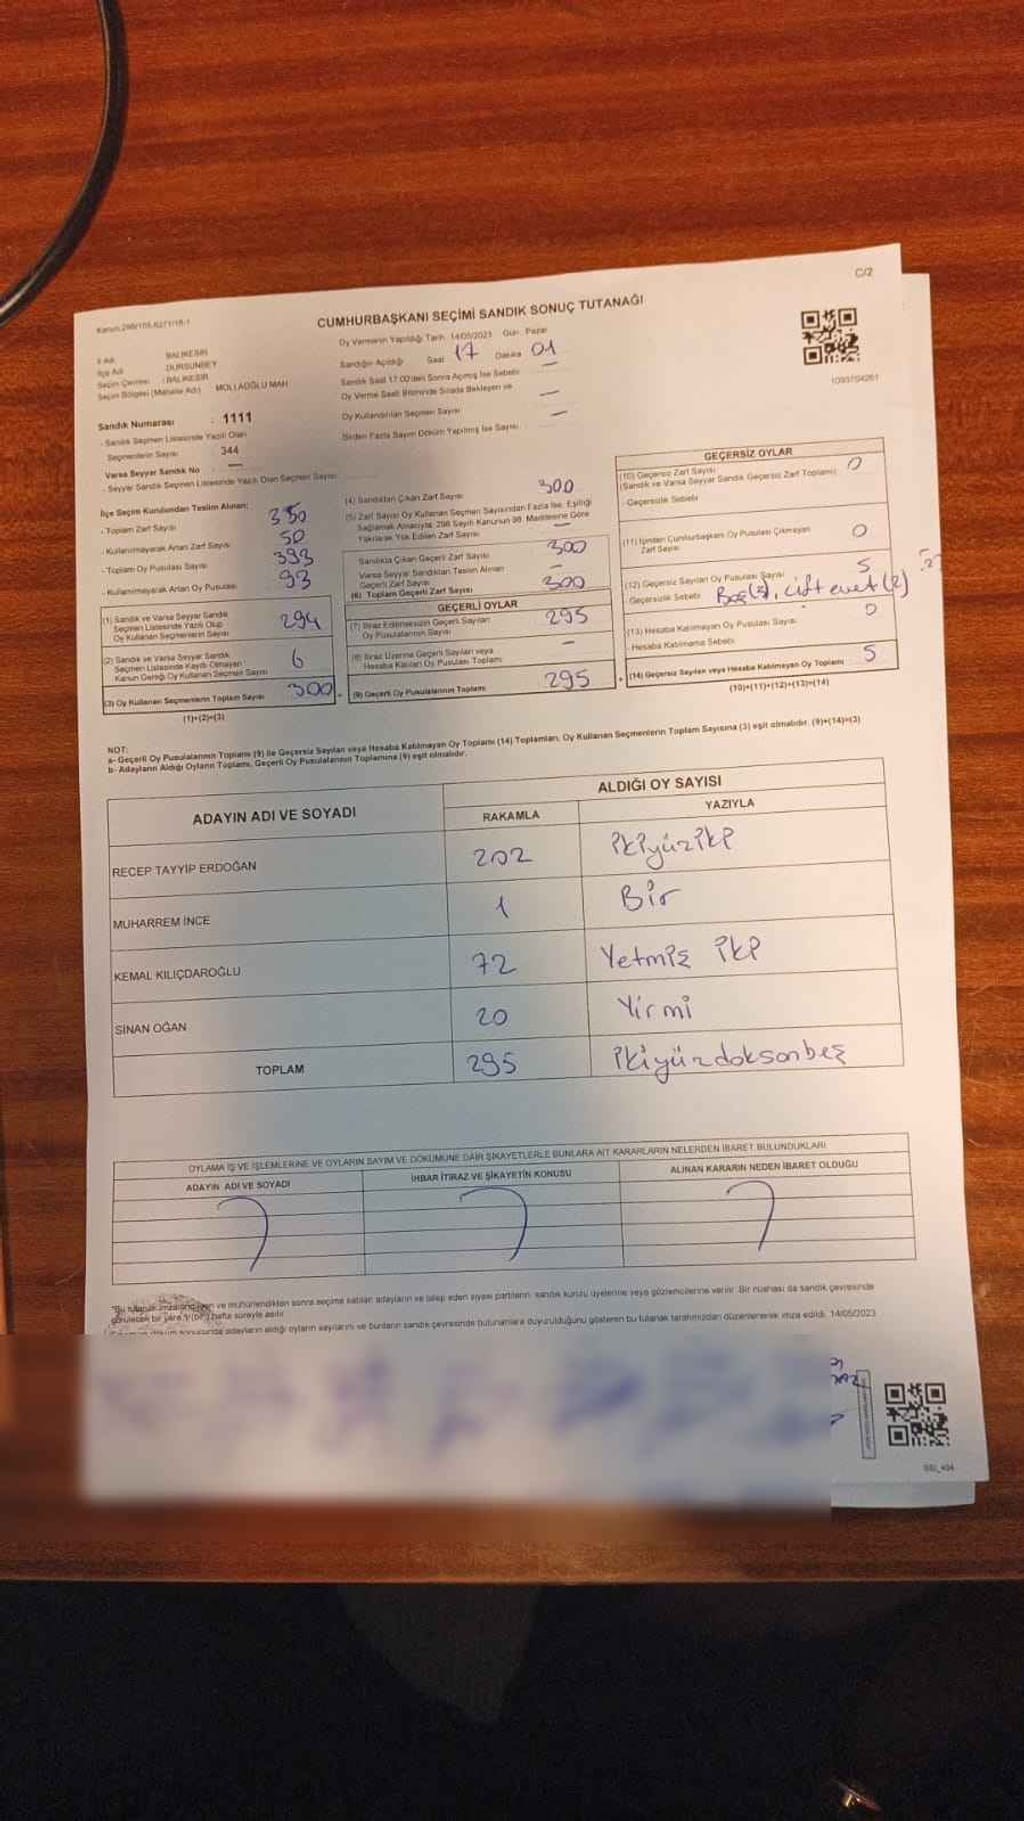 C/2
Kanun:298/105,6271/18-1
CUMHURBAŞKANI SEÇİMİ SANDIK SONUÇ TUTANAĞI
İl Adı : BALIKESİR
İlçe Adı : DURSUNBEY
Seçim Çevresi : BALIKESİR
Seçim Bölgesi (Mahalle Adı) : MOLLAOĞLU MAH
Sandık Numarası : 1111
- Sandık Seçmen Listesinde Yazılı Olan
Seçmenlerin Sayısı 344
Varsa Seyyar Sandık No : —
- Seyyar Sandık Seçmen Listesinde Yazılı Olan Seçmen Sayısı
Oy Vermenin Yapıldığı Tarih: 14/05/2023 Gün: Pazar
Sandığın Açıldığı Saat 17 Dakika 01
Sandık Saat 17:00'den Sonra Açılmış İse Sebebi —
Oy Verme Saati Bitiminde Sırada Bekleyen ve
Oy Kullandırılan Seçmen Sayısı —
Birden Fazla Sayım Döküm Yapılmış İse Sayısı —
İlçe Seçim Kurulundan Teslim Alınan:
- Toplam Zarf Sayısı 350
- Kullanılmayarak Artan Zarf Sayısı 50
- Toplam Oy Pusulası Sayısı 393
- Kullanılmayarak Artan Oy Pusulası 93
(1) Sandık ve Varsa Seyyar Sandık
Seçmen Listesinde Yazılı Olup
Oy Kullanan Seçmenlerin Sayısı 294
(2) Sandık ve Varsa Seyyar Sandık
Seçmen Listesinde Kaydı Olmayan
Kanun Gereği Oy Kullanan Seçmen Sayısı 6
(3) Oy Kullanan Seçmenlerin Toplam Sayısı 300
(1)+(2)=(3)
(4) Sandıktan Çıkan Zarf Sayısı 300
(5) Zarf Sayısı Oy Kullanan Seçmen Sayısından Fazla İse, Eşitliği
Sağlamak Amacıyla 298 Sayılı Kanunun 98. Maddesine Göre
Yakılarak Yok Edilen Zarf Sayısı —
Sandıkta Çıkan Geçerli Zarf Sayısı 300
Varsa Seyyar Sandıktan Teslim Alınan
Geçerli Zarf Sayısı —
(6) Toplam Geçerli Zarf Sayısı 300
GEÇERLİ OYLAR
(7) İtiraz Edilmeksizin Geçerli Sayılan
Oy Pusulalarının Sayısı 295
(8) İtiraz Üzerine Geçerli Sayılan veya
Hesaba Katılan Oy Pusulası Toplamı —
(9) Geçerli Oy Pusulalarının Toplamı 295
1093704261
GEÇERSİZ OYLAR
(10) Geçersiz Zarf Sayısı 0
(Sandık ve Varsa Seyyar Sandık Geçersiz Zarf Toplamı)
- Geçersizlik Sebebi
(11) İçinden Cumhurbaşkanı Oy Pusulası Çıkmayan
Zarf Sayısı 0
(12) Geçersiz Sayılan Oy Pusulası Sayısı 5
Geçersizlik Sebebi Boş(3), çift evet(2)
(13) Hesaba Katılmayan Oy Pusulası Sayısı 0
- Hesaba Katılmama Sebebi
(14) Geçersiz Sayılan veya Hesaba Katılmayan Oy Toplamı 5
(10)+(11)+(12)+(13)=(14)
NOT:
a- Geçerli Oy Pusulalarının Toplamı (9) ile Geçersiz Sayılan veya Hesaba Katılmayan Oy Toplamı (14) Toplamları, Oy Kullanan Seçmenlerin Toplam Sayısına (3) eşit olmalıdır. (9)+(14)=(3)
b- Adayların Aldığı Oyların Toplamı, Geçerli Oy Pusulalarının Toplamına (9) eşit olmalıdır.
ADAYIN ADI VE SOYADI
ALDIĞI OY SAYISI
RAKAMLA YAZIYLA
RECEP TAYYİP ERDOĞAN 202 ikiyüziki
MUHARREM İNCE 1 Bir
KEMAL KILIÇDAROĞLU 72 Yetmiş iki
SİNAN OĞAN 20 Yirmi
TOPLAM 295 ikiyüzdoksonbeş
OYLAMA İŞ VE İŞLEMLERİNE VE OYLARIN SAYIM VE DÖKÜMÜNE DAİR ŞİKAYETLERLE BUNLARA AİT KARARLARIN NELERDEN İBARET BULUNDUKLARI
ADAYIN ADI VE SOYADI İHBAR İTİRAZ VE ŞİKAYETİN KONUSU ALINAN KARARIN NEDEN İBARET OLDUĞU
*Bu tutanak imzalanıp ve mühürlendikten sonra seçime katılan adayların ve talep eden siyasi partilerin sandık kurulu üyelerine veya gözlemcilerine verilir. Bir nüshası da sandık çevresinde
görülecek bir yere 1(bir) hafta süreyle asılır.
adayların aldığı oyların sayılarını ve bunların sandık çevresinde bulunanlara duyurulduğunu gösteren bu tutanak tarafımızdan düzenlenerek imza edildi. 14/05/2023